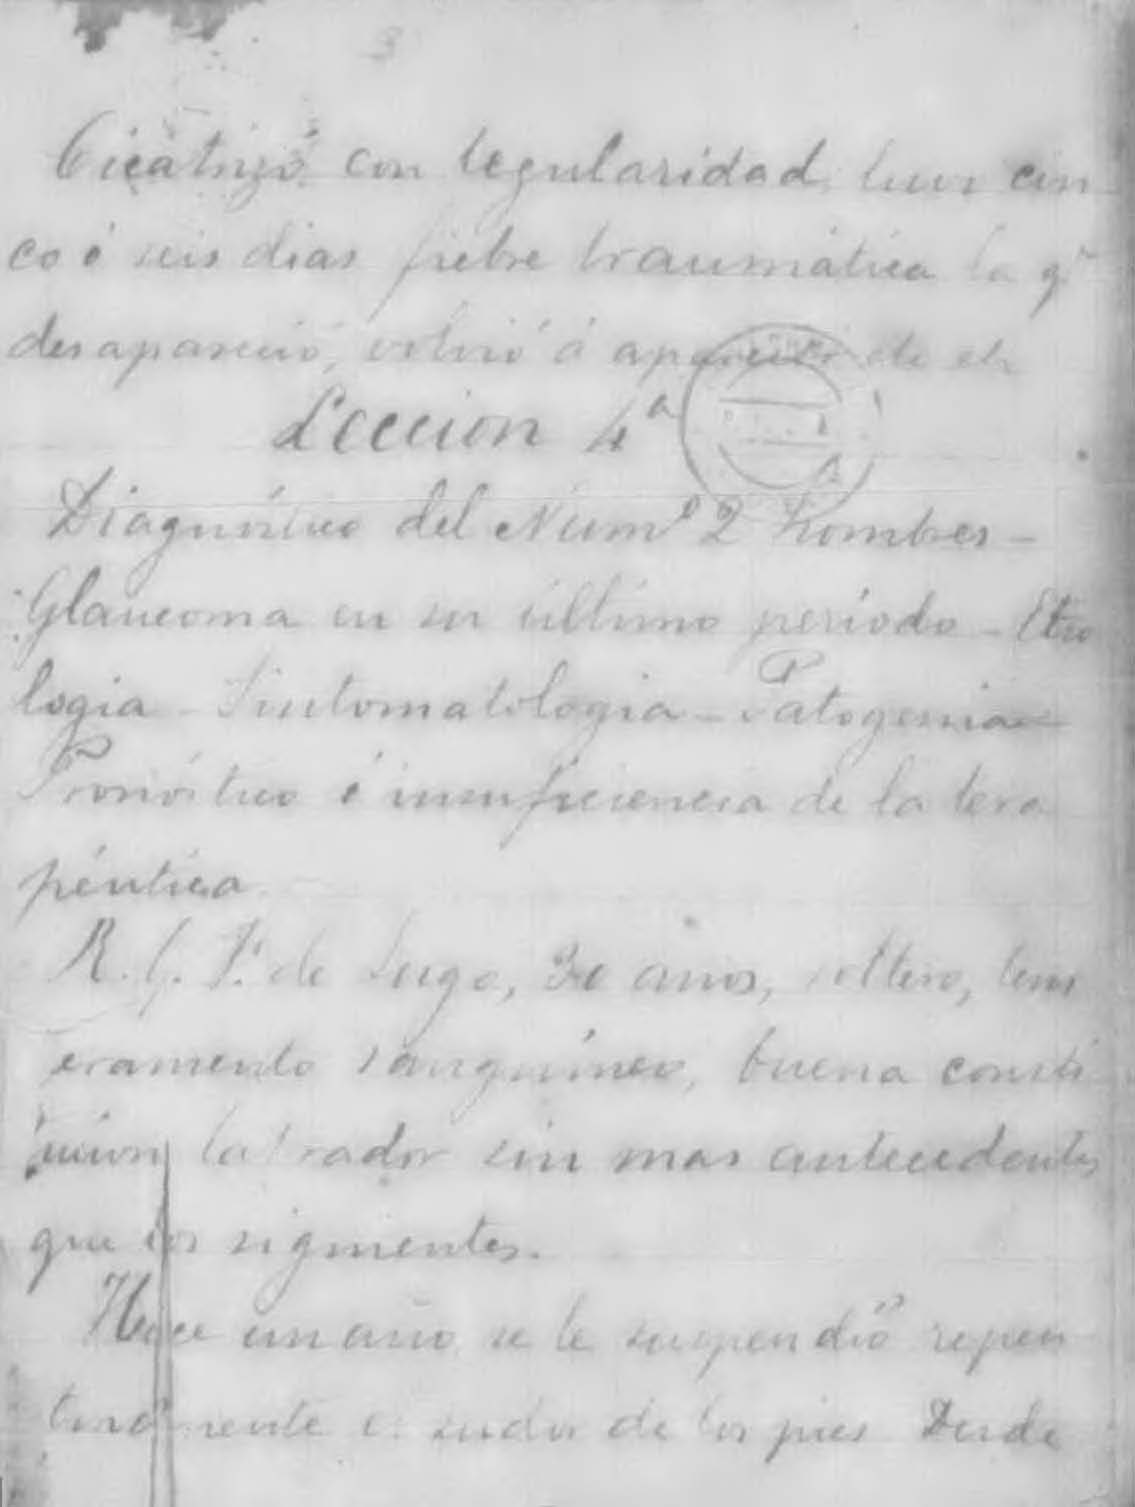 3
Cicatrizó con regularidad, tuvo cin
co ó seis dias fiebre traumática la qe
desapareció, volvió á aparecer de
Leccion 4a
Diagnóstico del Numo 2 Hombres-
Glaucoma en su último periodo - Etio
logia - Sintomatologia - Patogenia -
Pronóstico é insuficiencia de la tera
péutica
R. G. de Lugo, 30 años, soltero, tem
eramento sanguineo, buena consti
tucion labrador sin mas antecedentes
que los siguientes.
Hace un año se le suspendió repen
tinamente el sudor de los pies Desde